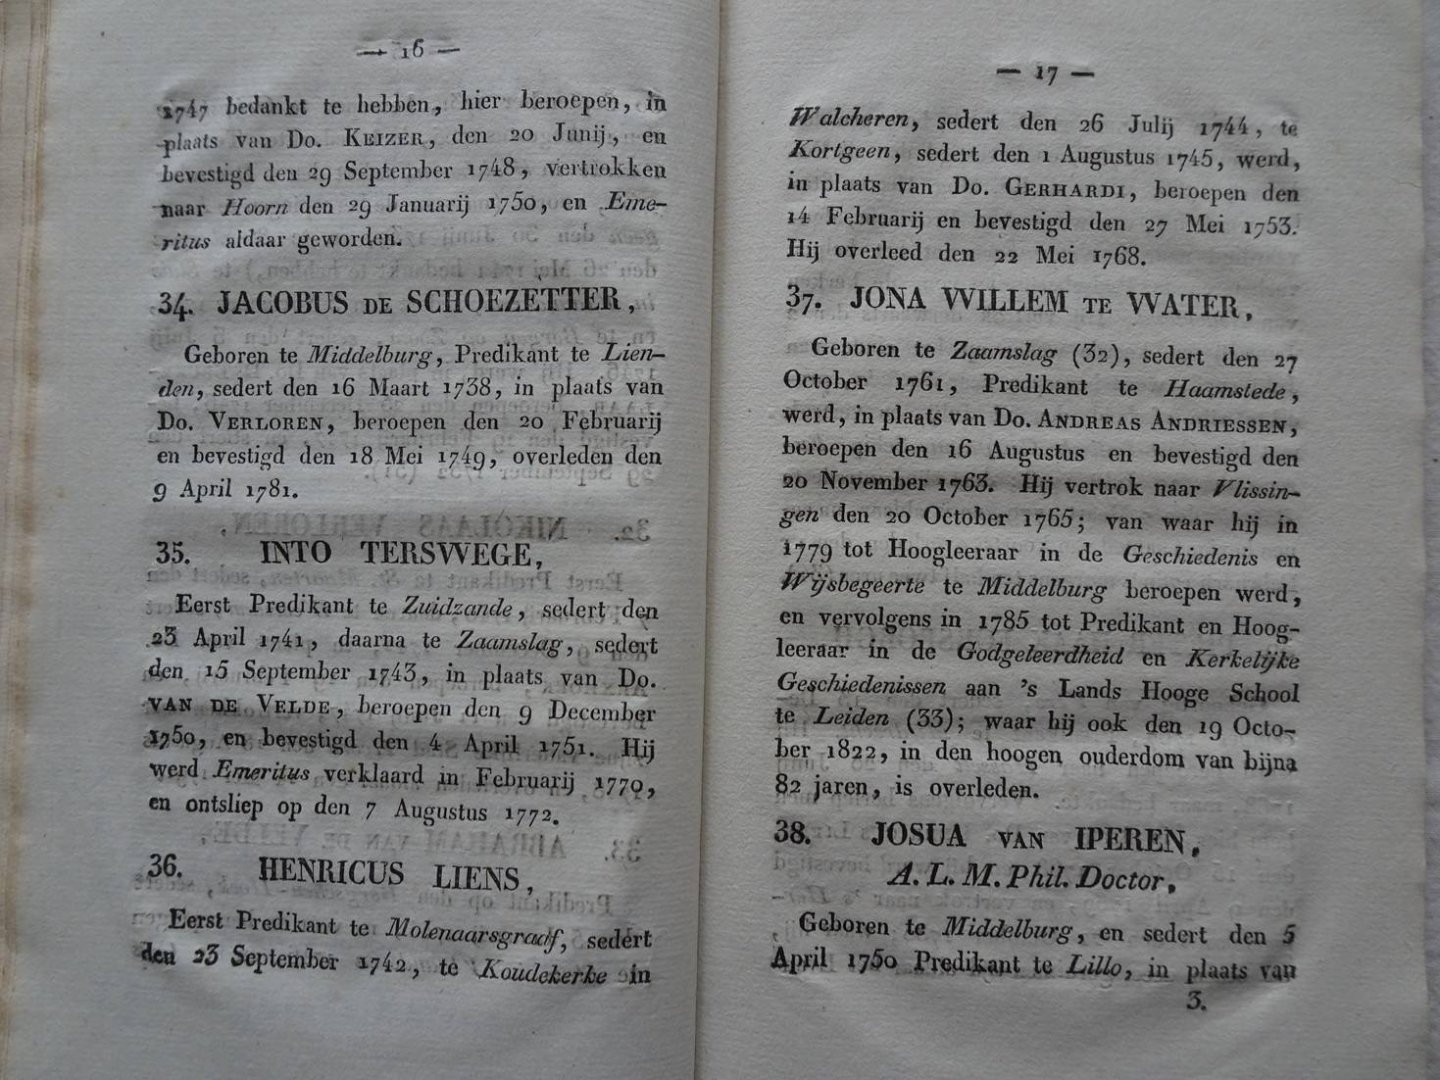 — 16 —
1747 bedankt te hebben, hier beroepen, in
plaats van Do. KEIZER, den 20 Junij, en
bevestigd den 29 September 1748, vertrokken
naar Hoorn den 29 Januarij 1750, en Eme-
ritus aldaar geworden.
34. JACOBUS DE SCHOEZETTER,
Geboren te Middelburg, Predikant te Lien-
den, sedert den 16 Maart 1738, in plaats van
Do. VERLOREN, beroepen den 20 Februarij
en bevestigd den 18 Mei 1749, overleden den
9 April 1781.
35. INTO TERSWEGE,
Eerst Predikant te Zuidzande, sedert den
23 April 1741, daarna te Zaamslag, sedert
den 15 September 1743, in plaats van Do.
VAN DE VELDE, beroepen den 9 December
1750, en bevestigd den 4 April 1751. Hij
werd Emeritus verklaard in Februarij 1770,
en ontsliep op den 7 Augustus 1772.
36. HENRICUS LIENS,
Eerst Predikant te Molenaarsgraaf, sedert
den 23 September 1742, te Koudekerke in
— 17 —
Walcheren, sedert den 26 Julij 1744, te
Kortgeen, sedert den 1 Augustus 1745, werd,
in plaats van Do. GERHARDI, beroepen den
14 Februarij en bevestigd den 27 Mei 1753.
Hij overleed den 22 Mei 1768.
37. JONA WILLEM TE WATER,
Geboren te Zaamslag (32), sedert den 27
October 1761, Predikant te Haamstede,
werd, in plaats van Do. ANDREAS ANDRIESSEN,
beroepen den 16 Augustus en bevestigd den
20 November 1763. Hij vertrok naar Vlissin-
gen den 20 October 1765; van waar hij in
1779 tot Hoogleeraar in de Geschiedenis en
Wijsbegeerte te Middelburg beroepen werd,
en vervolgens in 1785 tot Predikant en Hoog-
leeraar in de Godgeleerdheid en Kerkelijke
Geschiedenissen aan 's Lands Hooge School
te Leiden (33); waar hij ook den 19 Octo-
ber 1822, in den hoogen ouderdom van bijna
82 jaren, is overleden.
38. JOSUA VAN IPEREN,
A. L. M. Phil. Doctor,
Geboren te Middelburg, en sedert den 5
April 1750 Predikant te Lillo, in plaats van
3.